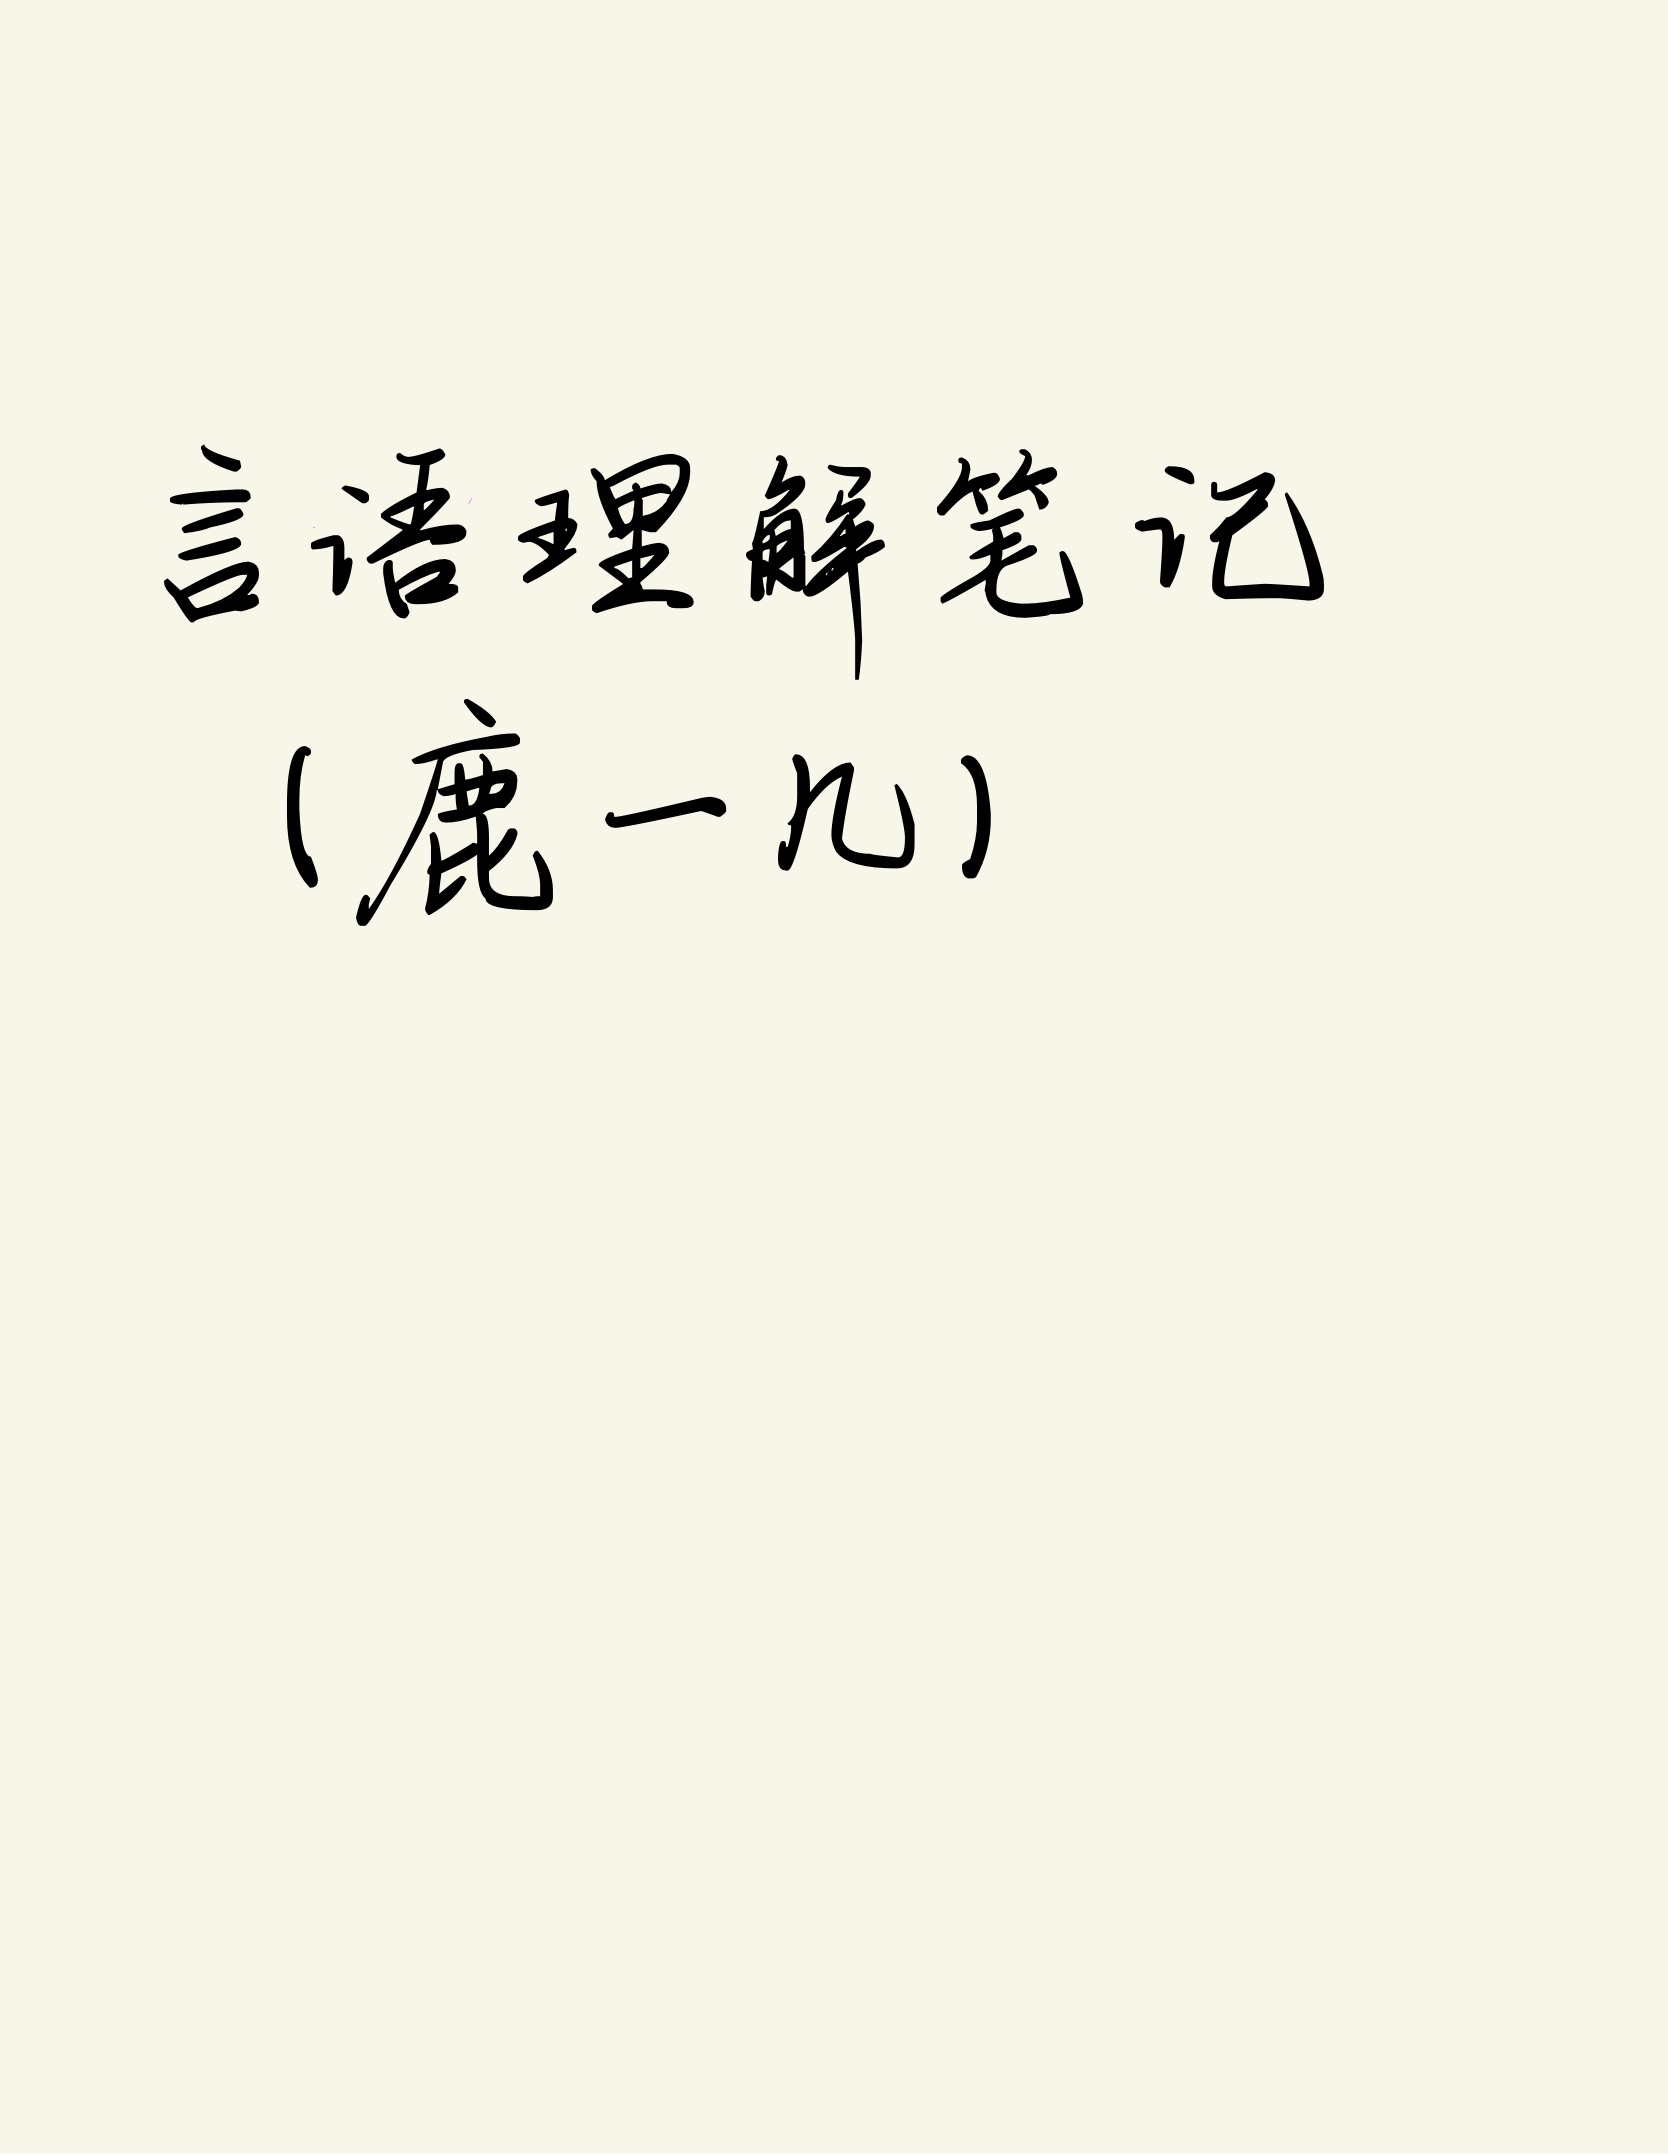 言语理解笔记
(鹿一凡)